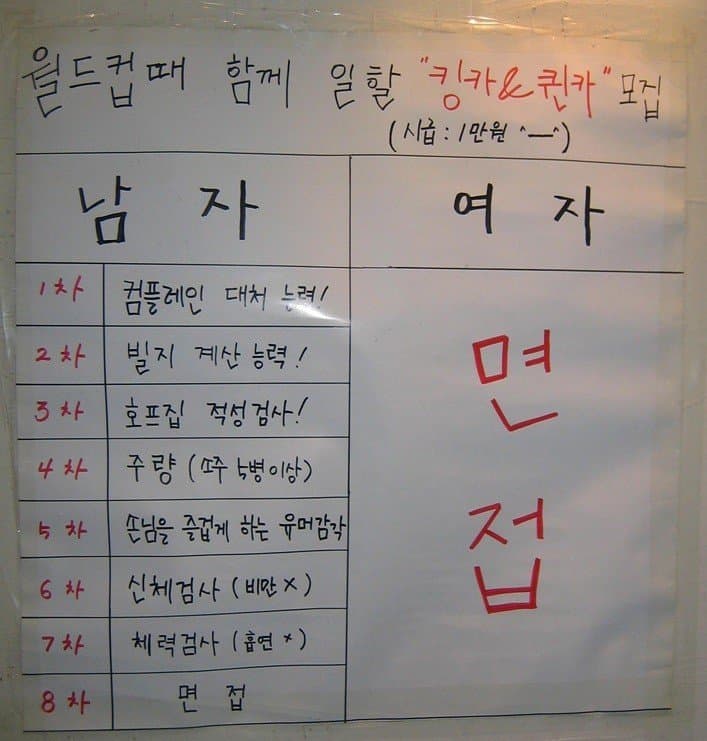 월드컵때 함께 일할 "킹카&퀸카" 모집
(시급:1만원 ^—^)
남 자
여 자
1차 컴플레인 대처 능력!
2차 빌지 계산 능력!
3차 호프집 적성검사!
4차 주량 (소주 5병이상)
5차 손님을 즐겁게 하는 유머감각
6차 신체검사 (비만 X)
7차 체력검사 (흡연 X)
8차 면 접
면
접